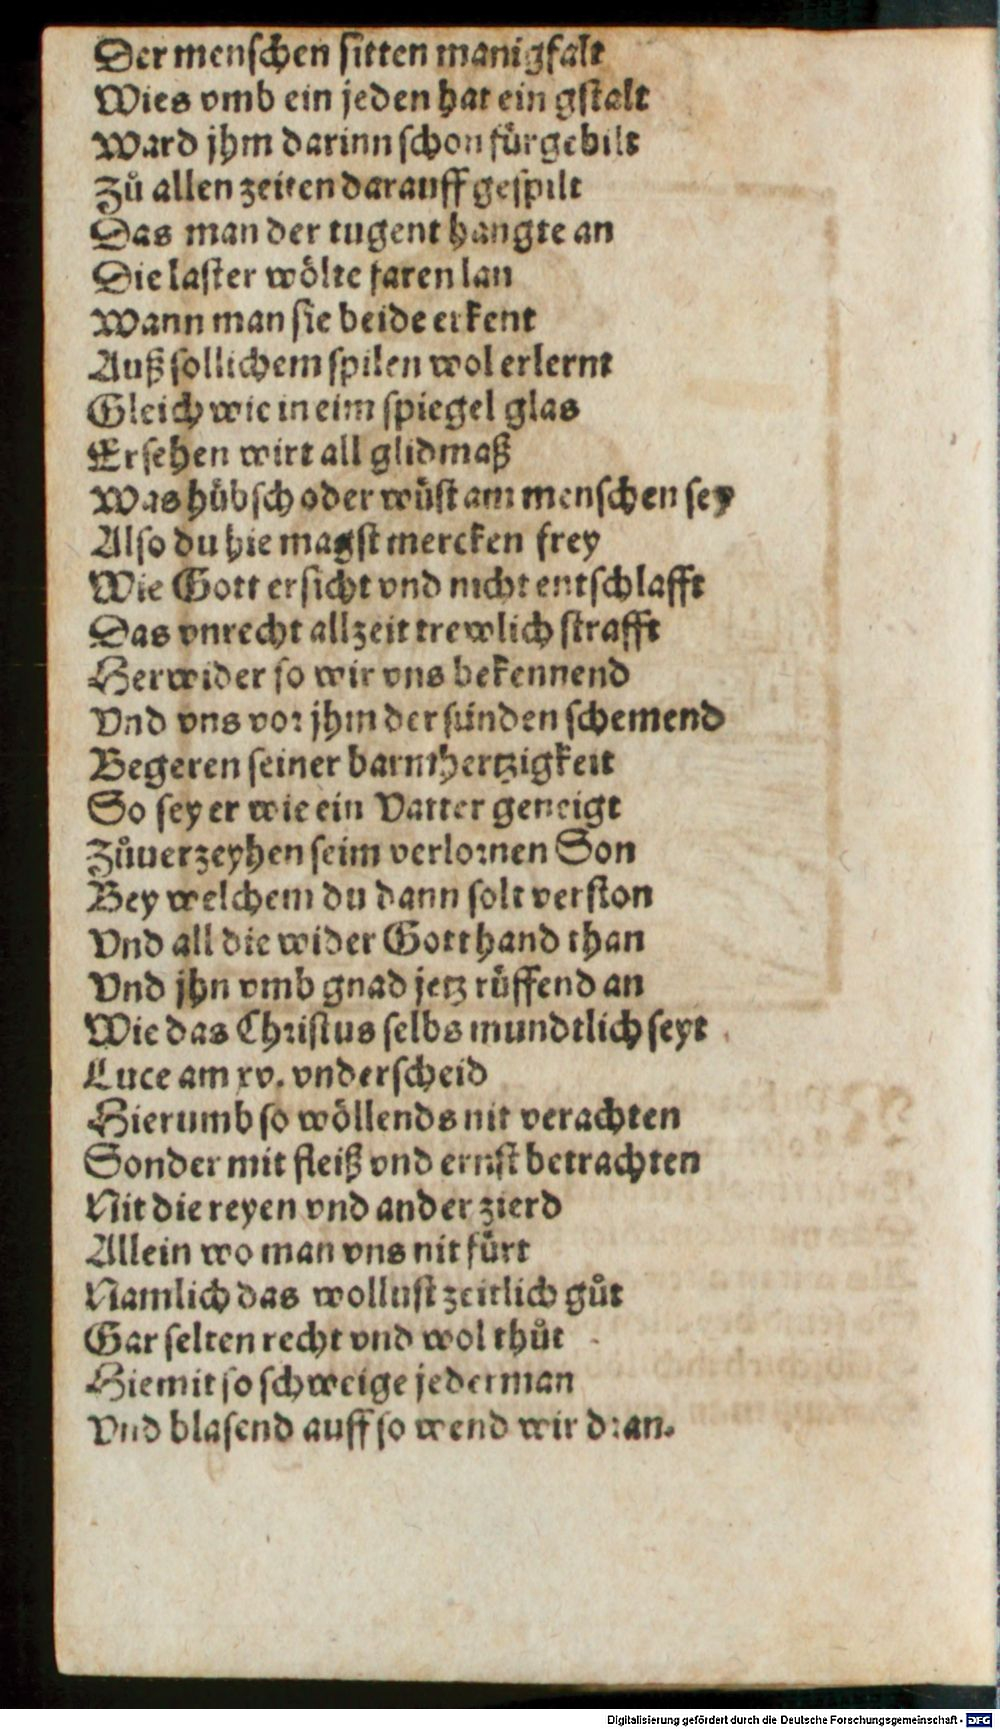 Der menschen sitten manigfalt
Wies vmb ein jeden hat ein gstalt
Ward jhm darinn schon fürgebilt
Zů allen zeiten darauff gespilt
Das man der tugent hangte an
Die laster wölte faren lan
Wann man sie beide erkent
Auß sollichem spilen wol erlernt
Gleich wie in eim spiegel glas
Ersehen wirt all glidmaß
Was hübsch oder wüst am menschen sey
Also du hie magst mercken frey
Wie Gott ersicht vnd nicht entschlafft
Das vnrecht allzeit trewlich strafft
Herwider so wir vns bekennend
Vnd vns vor jhm der sünden schemend
Begeren seiner barmhertzigkeit
So sey er wie ein Vatter geneigt
Zůuerzeyhen seim verlornen Son
Bey welchem du dann solt verston
Vnd all die wider Gott hand than
Vnd jhn vmb gnad jetz rüffend an
Wie das Christus selbs mundtlich seyt
Luce am xv. vnderscheid
Hierumb so wöllends nit verachten
Sonder mit fleiß vnd ernst betrachten
Nit die reyen vnd ander zierd
Allein wo man vns nit fürt
Namlich das wollust zeitlich gůt
Gar selten recht vnd wol thůt
Hiemit so schweige jederman
Vnd blasend auff so wend wir dran.
Digitalisierung gefördert durch die Deutsche Forschungsgemeinschaft - DFG